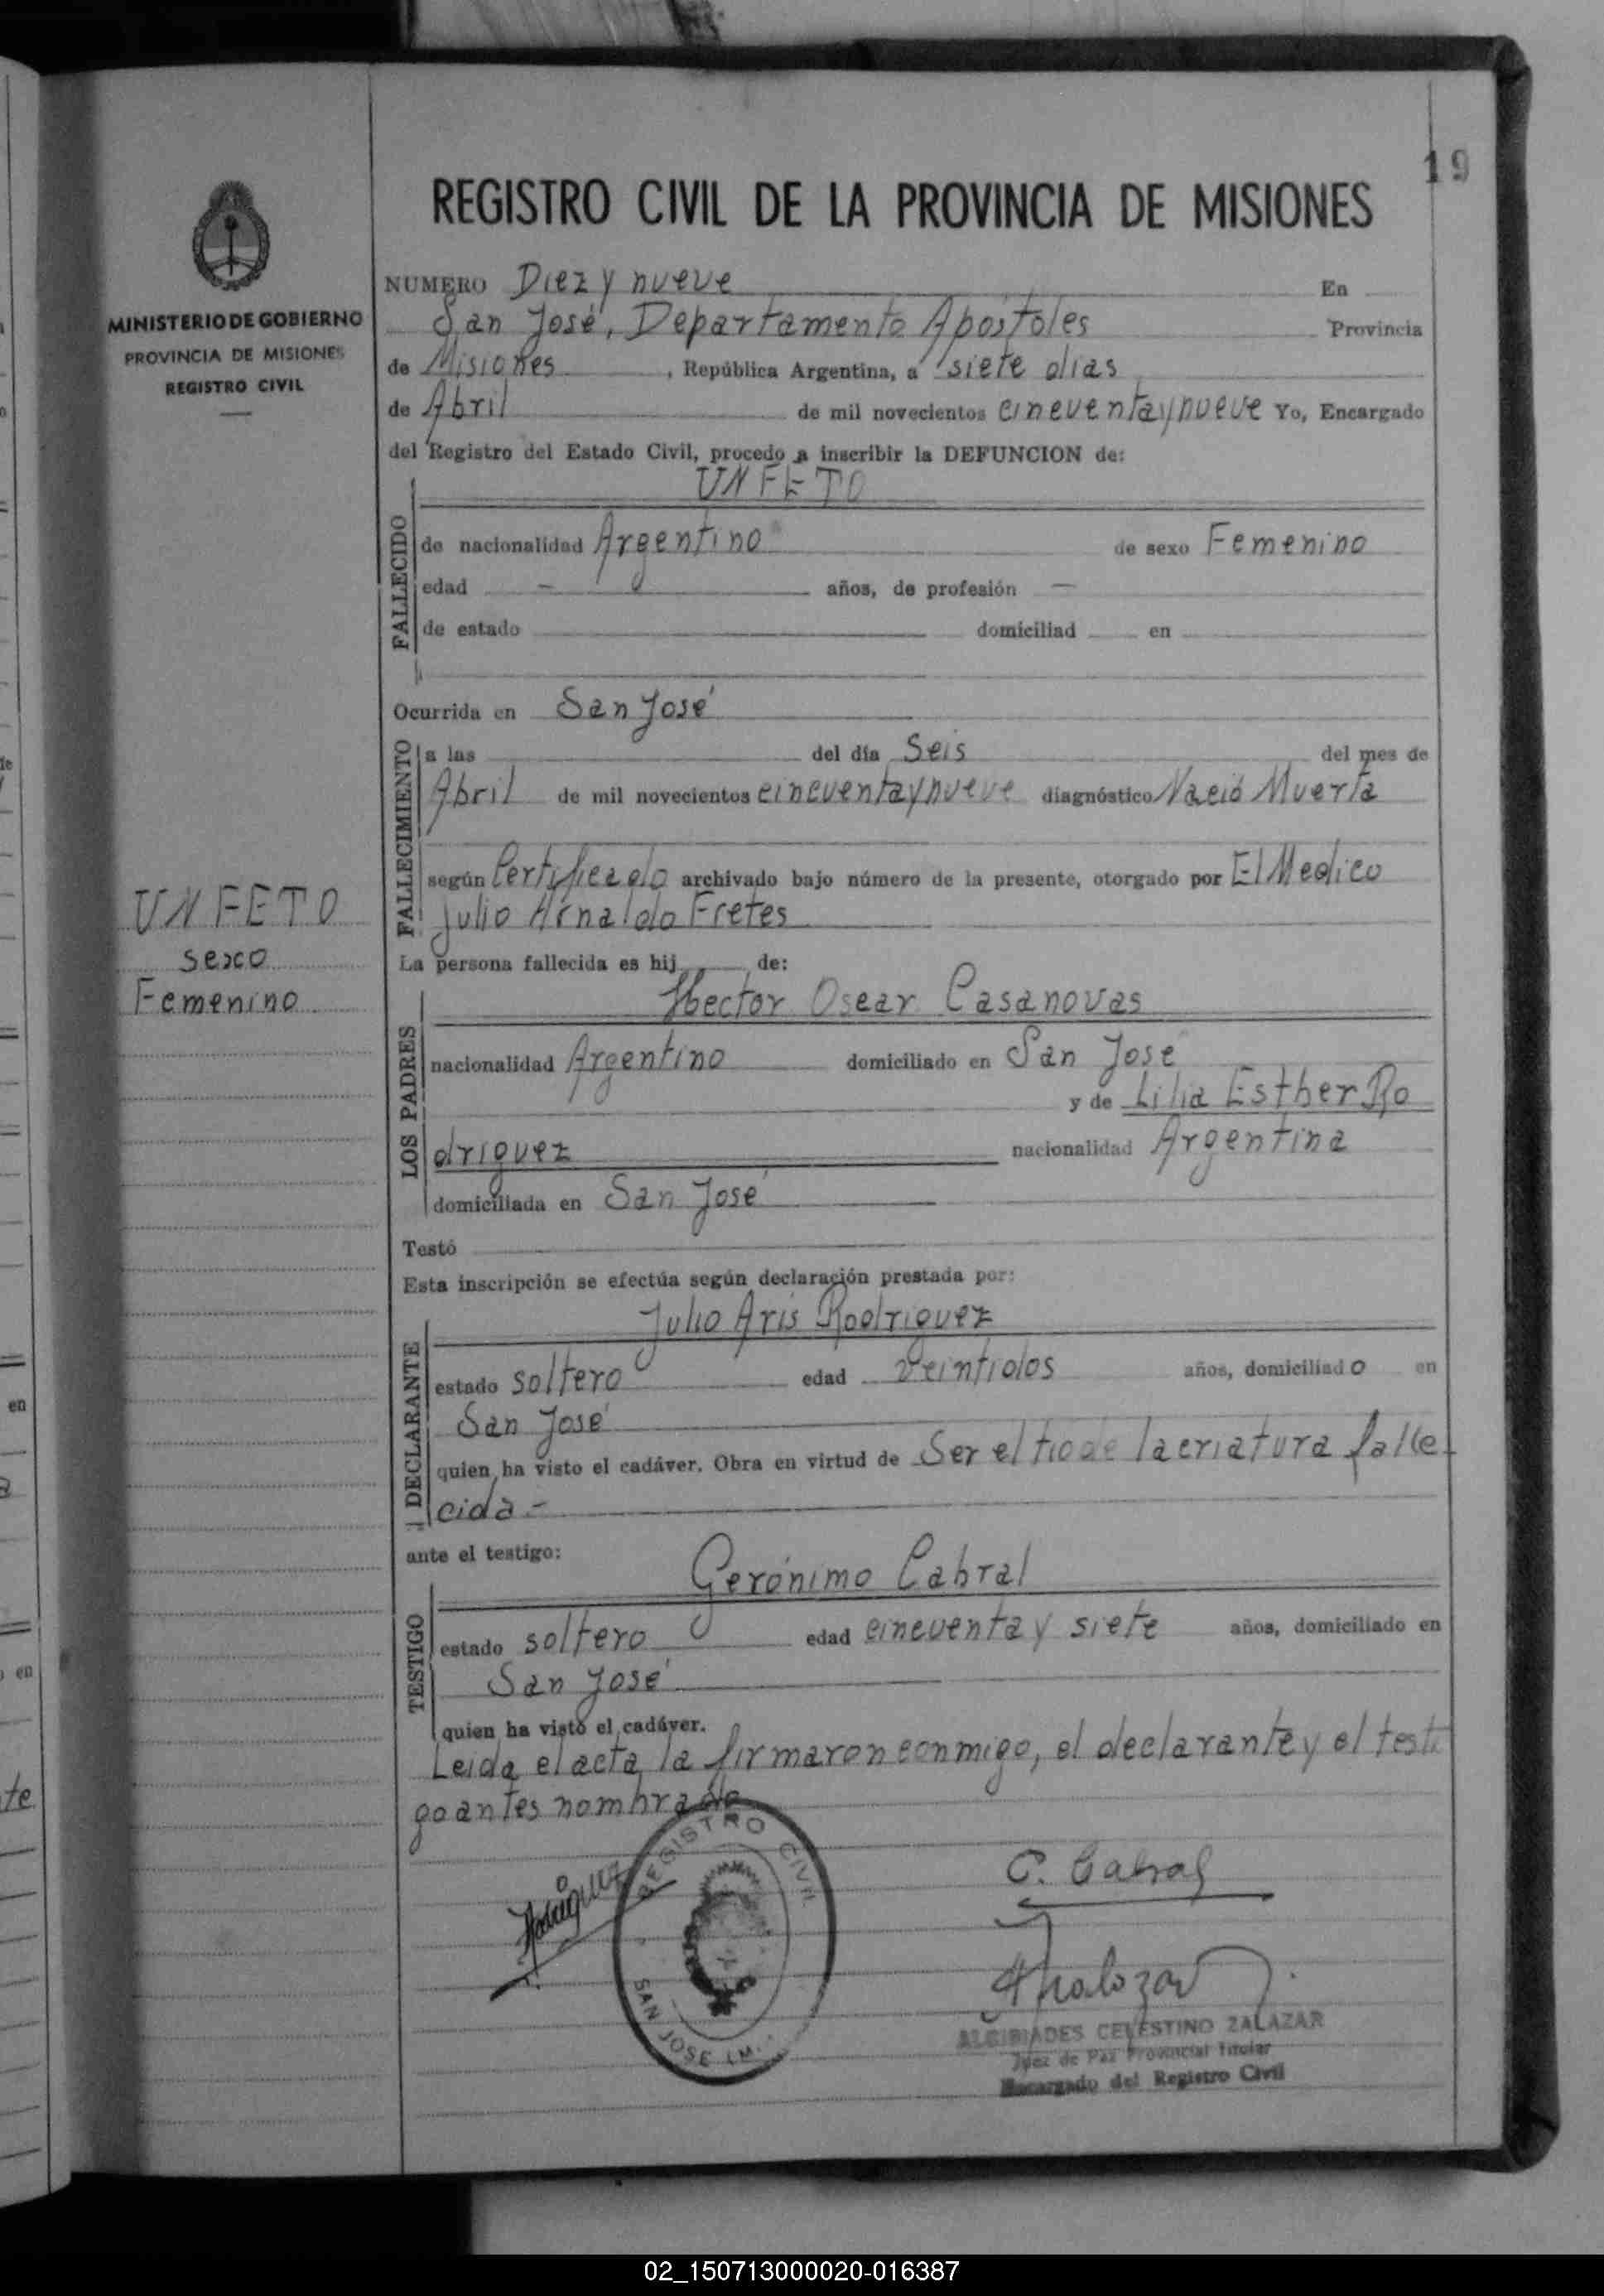 19
REGISTRO CIVIL DE LA PROVINCIA DE MISIONES
MINISTERIO DE GOBIERNO
PROVINCIA DE MISIONES
REGISTRO CIVIL
NUMERO Diez y nueve En
San José, Departamento Apóstoles Provincia
de Misiones, República Argentina, a siete dias
de Abril de mil novecientos cincuenta y nueve Yo, Encargado
del Registro del Estado Civil, procedo a inscribir la DEFUNCION de:
UN FETO
FALLECIDO
de nacionalidad Argentino de sexo Femenino
edad - años, de profesión -
de estado domiciliad en
Ocurrida en San José
FALLECIMIENTO
a las del día Seis del mes de
Abril de mil novecientos cincuenta y nueve diagnóstico Nació Muerta
según Certificado archivado bajo número de la presente, otorgado por El Medico
Julio Arnaldo Fretes
UN FETO
sexo
Femenino
La persona fallecida es hij de:
Hector Oscar Casanovas
LOS PADRES
nacionalidad Argentino domiciliado en San José
y de Lilia Esther Ro
driguez nacionalidad Argentina
domiciliada en San José
Testó
Esta inscripción se efectúa según declaración prestada por:
Julio Aris Rodriguez
DECLARANTE
estado soltero edad veintidos años, domiciliado en
San José
quien ha visto el cadáver. Obra en virtud de Ser el tio de la criatura falle-
cida-
ante el testigo:
Gerónimo Cabral
TESTIGO
estado soltero edad cincuenta y siete años, domiciliado en
San José
quien ha visto el cadáver.
Leida el acta, la firmaron conmigo, el declarante y el testi
go antes nombrado
REGISTRO CIVIL
SAN JOSE (M.
Rodriguez
G. Cabral
ALCIBIADES CELESTINO ZALAZAR
Juez de Paz Provincial Titular
Encargado del Registro Civil
02_150713000020-016387